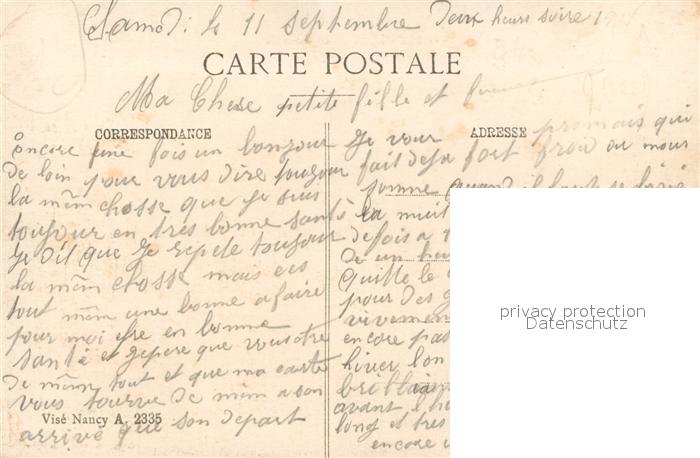 Samedi le 11 Septembre Deux heurs soire
CARTE POSTALE
Ma Chere petite fille et
CORRESPONDANCE
ADRESSE
encore une fois un bonjour
de loin pour vous dire toujour
la mêm chosse que je suis
toujour en très bonne santé
je dit que je repete toujour
la mêm chosse mais ces
tout mêm une bonne afaire
pour moi être en bonne
santé et j'espere que vous etre
de mêm tout et que ma carte
vous tourve de mêm a son
arrivé que son depart
Visé Nancy A. 2335
Je vous promais qui
fait deja fort froid ou nous
somme quand il faut
la nuit
defois a
de un
quitte le
pour des
vivement
encore pas
hiver lon
brillant
avant l
long et très
encore
privacy protection
Datenschutz